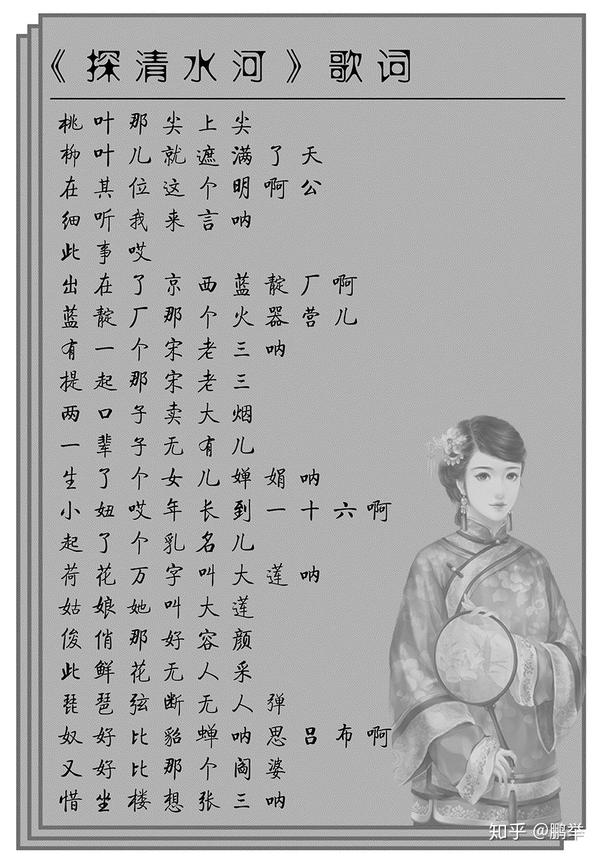 《探清水河》歌词
桃叶那尖上尖
柳叶儿就遮满了天
在其位这个明啊公
细听我来言呐
此事哎
出在了京西蓝靛厂啊
蓝靛厂那个火器营儿
有一个宋老三呐
提起那宋老三
两口子卖大烟
一辈子无有儿
生了个女儿婵娟呐
小妞哎年长到一十六啊
起了个乳名儿
荷花万字叫大莲呐
姑娘她叫大莲
俊俏那好容颜
此鲜花无人采
琵琶弦断无人弹
奴好比貂蝉呐思吕布啊
又好比那个阎婆
惜坐楼想张三呐
知乎 @鹏举